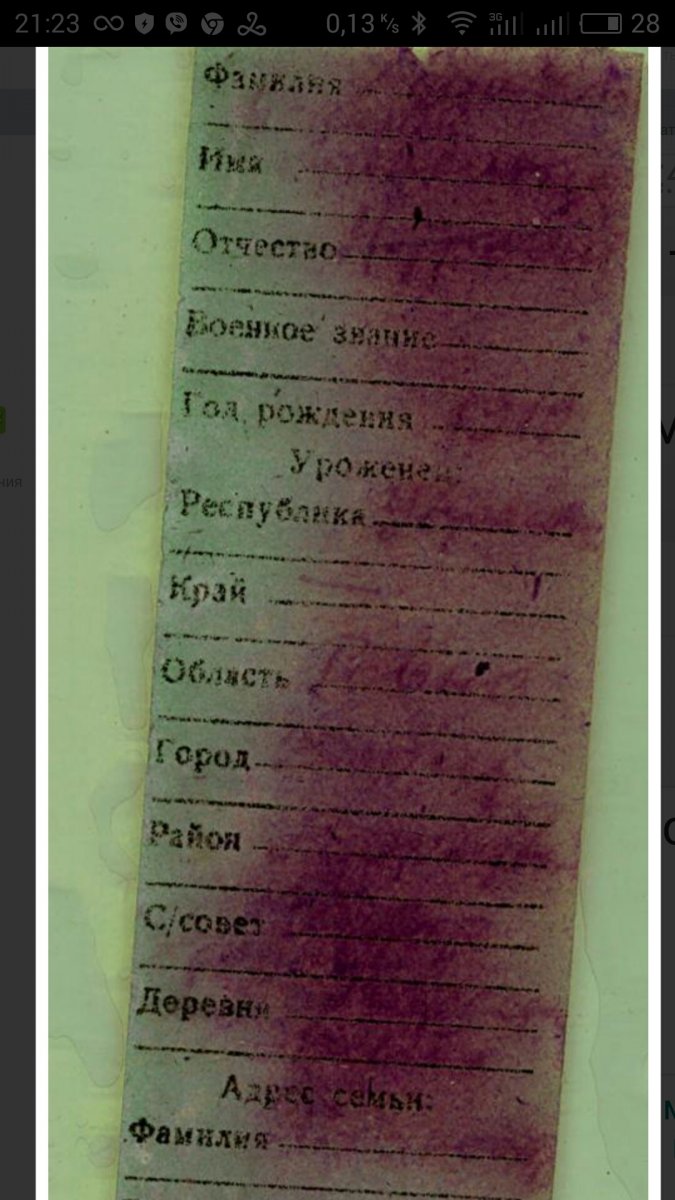 21:23 0,13 K/s 3G 28
Фамилия
Имя
Отчество
Военное звание
Год рождения
Уроженец:
Республика
Край
Область
Город
Район
С/совет
Деревня
Адрес семьи:
Фамилия